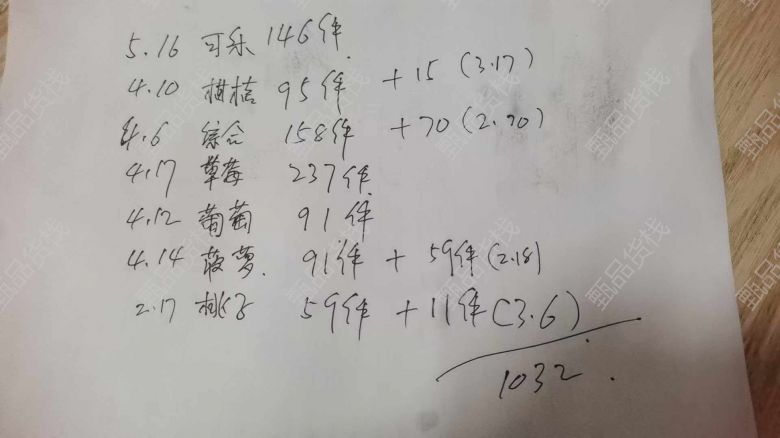 5.16 可乐 146件.
4.10 柑桔 95件 +15 (3.17)
4.6 综合 158件 +70 (2.20)
4.17 草莓 237件.
4.12 葡萄 91件
4.14 菠萝. 91件 + 59件 (2.18)
2.17 桃子 59件 + 11件 (3.6)
1032.
甄品货栈